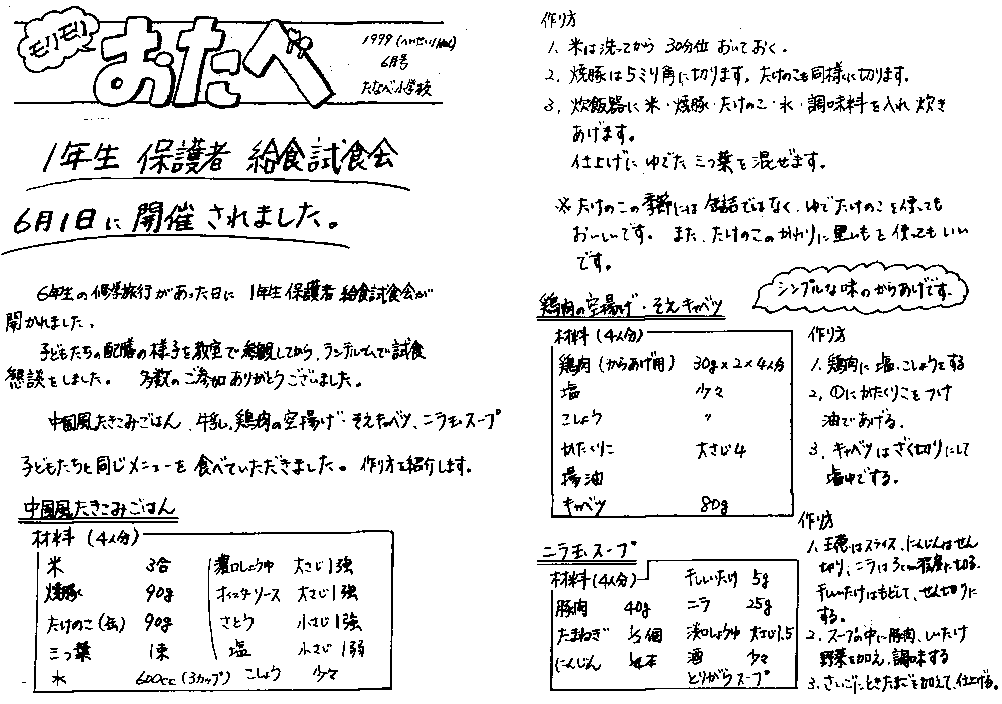 モリモリ
おたべ
1999(へいせい11ねん)
6月号
たなべ小学校
1年生 保護者 給食試食会
6月1日に開催されました。
6年生の修学旅行があった日に 1年生保護者給食試食会が
開かれました。
子どもたちの配膳の様子を教室で参観してから、ランチルームで試食
懇談をしました。 多数のご参加ありがとうございました。
中国風たきこみごはん、牛乳、鶏肉の空揚げ・そえキャベツ、ニラ玉スープ
子どもたちと同じメニューを食べていただきました。作り方を紹介します。
中国風たきこみごはん
材料(4人分)
米 3合 濃口しょうゆ 大さじ1強
焼豚 90g オイスターソース 大さじ1強
たけのこ(缶) 90g さとう 小さじ1強
三つ葉 1束 塩 小さじ1弱
水 600cc(3カップ) こしょう 少々
作り方
1. 米は洗ってから 30分位おいておく。
2. 焼豚は5ミリ角に切ります。たけのこも同様に切ります。
3. 炊飯器に米・焼豚・たけのこ・水・調味料を入れ炊き
あげます。
仕上げにゆでた三つ葉を混ぜます。
※たけのこの季節には缶詰ではなく、ゆでたけのこを使っても
おいしいです。 また、たけのこのかわりに里いもを使ってもいい
です。
シンプルな味のからあげです。
鶏肉の空揚げ・そえキャベツ
材料(4人分)
鶏肉(からあげ用) 30g×2×4人分
塩 少々
こしょう 〃
かたくりこ 大さじ4
揚油
キャベツ 80g
作り方
1. 鶏肉に塩、こしょうをする
2. ①にかたくりこをつけ
油であげる。
3. キャベツはざく切りにして
塩ゆでする。
ニラ玉スープ
材料(4人分) 干しいたけ 5g
豚肉 40g ニラ 25g
たまねぎ 1/2個 淡口しょうゆ 大さじ1.5
にんじん 1/4本 酒 少々
とりがらスープ
作り方
1. 玉葱はスライス、にんじんはせん
切り、ニラは3cm程度に切る。
干しいたけはもどして、せん切りに
する。
2. スープの中に豚肉、しいたけ
野菜を加え、調味する
3. さいごにときたまごを加えて、仕上げる。